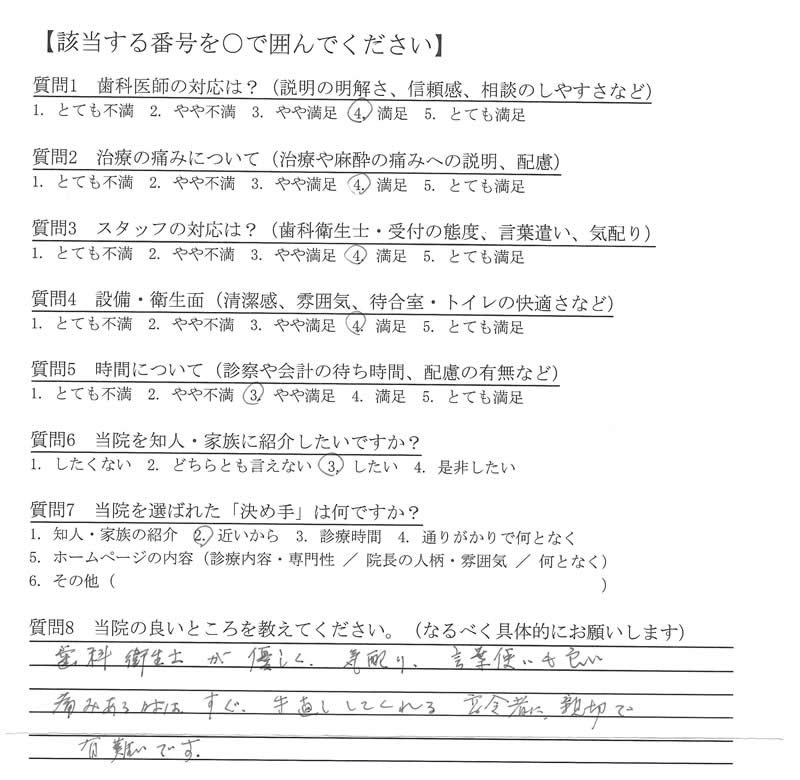 【該当する番号を○で囲んでください】
質問1　歯科医師の対応は？（説明の明解さ、信頼感、相談のしやすさなど）
1. とても不満　2. やや不満　3. やや満足　4. 満足　5. とても満足
質問2　治療の痛みについて（治療や麻酔の痛みへの説明、配慮）
1. とても不満　2. やや不満　3. やや満足　4. 満足　5. とても満足
質問3　スタッフの対応は？（歯科衛生士・受付の態度、言葉遣い、気配り）
1. とても不満　2. やや不満　3. やや満足　4. 満足　5. とても満足
質問4　設備・衛生面（清潔感、雰囲気、待合室・トイレの快適さなど）
1. とても不満　2. やや不満　3. やや満足　4. 満足　5. とても満足
質問5　時間について（診察や会計の待ち時間、配慮の有無など）
1. とても不満　2. やや不満　3. やや満足　4. 満足　5. とても満足
質問6　当院を知人・家族に紹介したいですか？
1. したくない　2. どちらとも言えない　3. したい　4. 是非したい
質問7　当院を選ばれた「決め手」は何ですか？
1. 知人・家族の紹介　2. 近いから　3. 診療時間　4. 通りがかりで何となく
5. ホームページの内容（診療内容・専門性 ／ 院長の人柄・雰囲気 ／ 何となく）
6. その他（　　　　　　　　　　）
質問8　当院の良いところを教えてください。（なるべく具体的にお願いします）
歯科衛生士が優しく、気配り、言葉使いも良い
痛みある時はすぐ、手直ししてくれる 高令者に、親切で
有難いです。